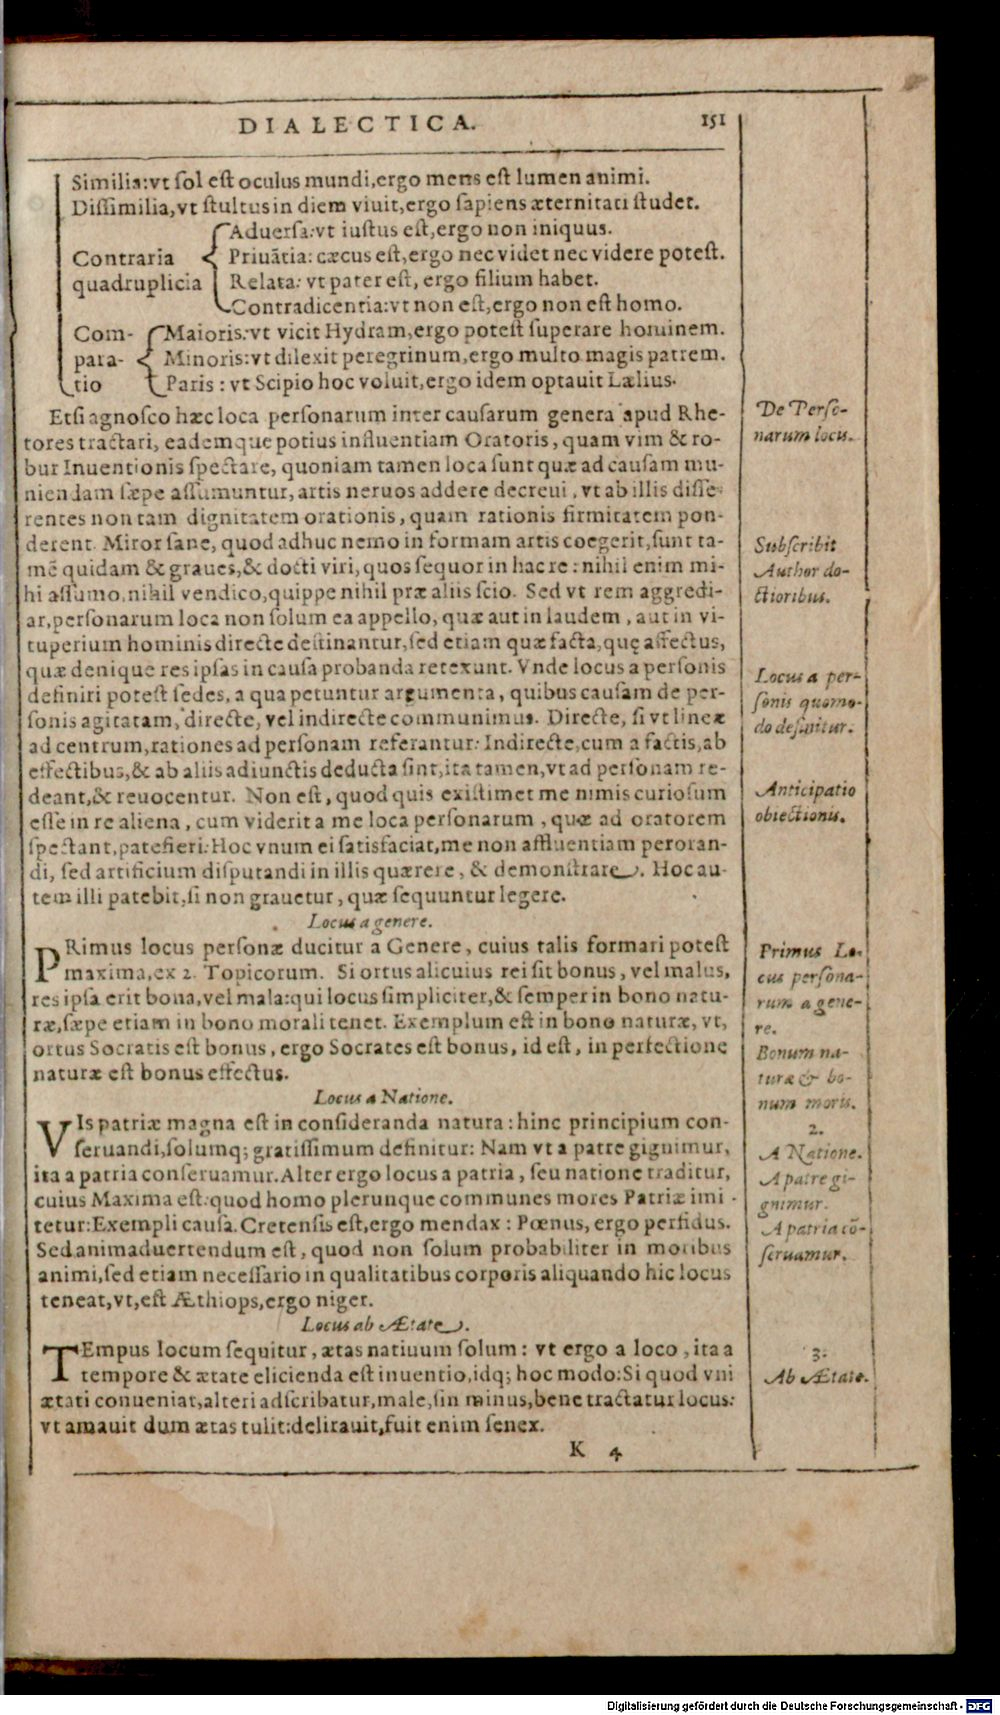 DIALECTICA. 151
Similia:vt sol est oculus mundi,ergo mens est lumen animi.
Dissimilia, vt stultus in diem viuit, ergo sapiens æternitati studet.
Contraria quadruplicia
Aduersa:vt iustus est,ergo non iniquus.
Priuãtia: cæcus est,ergo nec videt nec videre potest.
Relata: vt pater est, ergo filium habet.
Contradicentia:vt non est,ergo non est homo.
Com-
para-
tio
Maioris:vt vicit Hydram,ergo potest superare hominem.
Minoris:vt dilexit peregrinum,ergo multo magis patrem.
Paris : vt Scipio hoc voluit,ergo idem optauit Lælius.
Etsi agnosco hæc loca personarum inter causarum genera apud Rhe-
tores tractari, eademque potius influentiam Oratoris, quam vim & ro-
bur Inuentionis spectare, quoniam tamen loca sunt quæ ad causam mu-
niendam sæpe assumuntur, artis neruos addere decreui, vt ab illis disse-
rentes non tam dignitatem orationis, quam rationis firmitatem pon-
derent. Miror sane, quod adhuc nemo in formam artis coegerit, sunt ta-
mẽ quidam & graues,& docti viri, quos sequor in hac re : nihil enim mi-
hi assumo, nihil vendico, quippe nihil præ aliis scio. Sed vt rem aggredi-
ar, personarum loca non solum ea appello, quæ aut in laudem, aut in vi-
tuperium hominis directe destinantur, sed etiam quæ facta, quę affectus,
quæ denique res ipsas in causa probanda retexunt. Vnde locus a personis
definiri potest sedes, a qua petuntur argumenta, quibus causam de per-
sonis agitatam, directe, vel indirecte communimus. Directe, si vt lineæ
ad centrum, rationes ad personam referantur: Indirecte, cum a factis, ab
effectibus, & ab aliis adiunctis deducta sint, ita tamen, vt ad personam re-
deant, & reuocentur. Non est, quod quis existimet me nimis curiosum
esse in re aliena, cum viderit a me loca personarum, quæ ad oratorem
spectant, patefieri: Hoc vnum ei satisfaciat, me non affluentiam peroran-
di, sed artificium disputandi in illis quærere, & demonstrare. Hoc au-
tem illi patebit, si non grauetur, quæ sequuntur legere.
Locus a genere.
PRimus locus personæ ducitur a Genere, cuius talis formari potest
maxima, ex 2. Topicorum. Si ortus alicuius rei sit bonus, vel malus,
res ipsa erit bona, vel mala: qui locus simpliciter, & semper in bono natu-
ræ, sæpe etiam in bono morali tenet. Exemplum est in bono naturæ, vt,
ortus Socratis est bonus, ergo Socrates est bonus, id est, in perfectione
naturæ est bonus effectus.
Locus a Natione.
VIs patriæ magna est in consideranda natura : hinc principium con-
seruandi, solumq; gratissimum definitur: Nam vt a patre gignimur,
ita a patria conseruamur. Alter ergo locus a patria, seu natione traditur,
cuius Maxima est: quod homo plerunque communes mores Patriæ imi-
tetur: Exempli causa. Cretensis est, ergo mendax : Pœnus, ergo perfidus.
Sed animaduertendum est, quod non solum probabiliter in moribus
animi, sed etiam necessario in qualitatibus corporis aliquando hic locus
teneat, vt, est Æthiops, ergo niger.
Locus ab Ætate.
TEmpus locum sequitur, ætas natiuum solum : vt ergo a loco, ita a
tempore & ætate elicienda est inuentio, idq; hoc modo: Si quod vni
ætati conueniat, alteri adscribatur, male, sin minus, bene tractatur locus:
vt amauit dum ætas tulit: delirauit, fuit enim senex.
K 4
De Perso-
narum locu.
Subscribit
Author do-
ctioribus.
Locus a per-
sonis quomo-
do definitur.
Anticipatio
obiectionis.
Primus Lo-
cus persona-
rum a gene-
re.
Bonum na-
turæ & bo-
num moris.
2.
A Natione.
A patre gi-
gnimur.
A patria cõ-
seruamur.
3.
Ab Ætate.
Digitalisierung gefördert durch die Deutsche Forschungsgemeinschaft - DFG